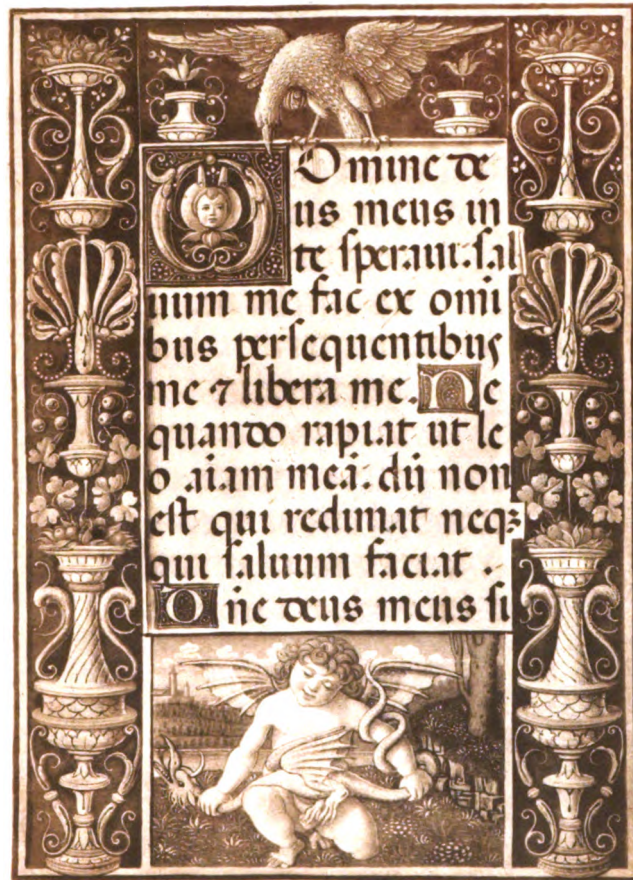 Domine de
us meus in
te speraui. sal
uum me fac ex omi
bus persequentibus
me ⁊ libera me. Ne
quando rapiat ut le
o aīam meā. dū non
est qui redimat neqꝫ
qui saluum faciat .
Dn̄e deus meus si